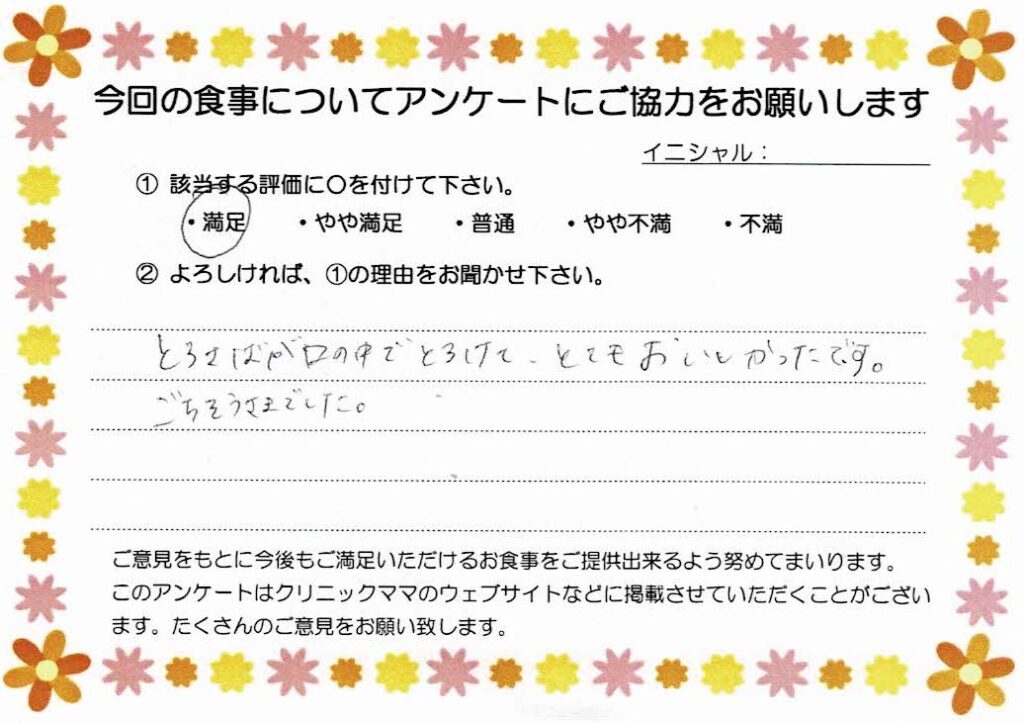 今回の食事についてアンケートにご協力をお願いします
イニシャル：
① 該当する評価に〇を付けて下さい。
・満足 ・やや満足 ・普通 ・やや不満 ・不満
② よろしければ、①の理由をお聞かせ下さい。
とろさばが口の中でとろけて、とてもおいしかったです。
ごちそうさまでした。
ご意見をもとに今後もご満足いただけるお食事をご提供出来るよう努めてまいります。
このアンケートはクリニックママのウェブサイトなどに掲載させていただくことがござい
ます。たくさんのご意見をお願い致します。